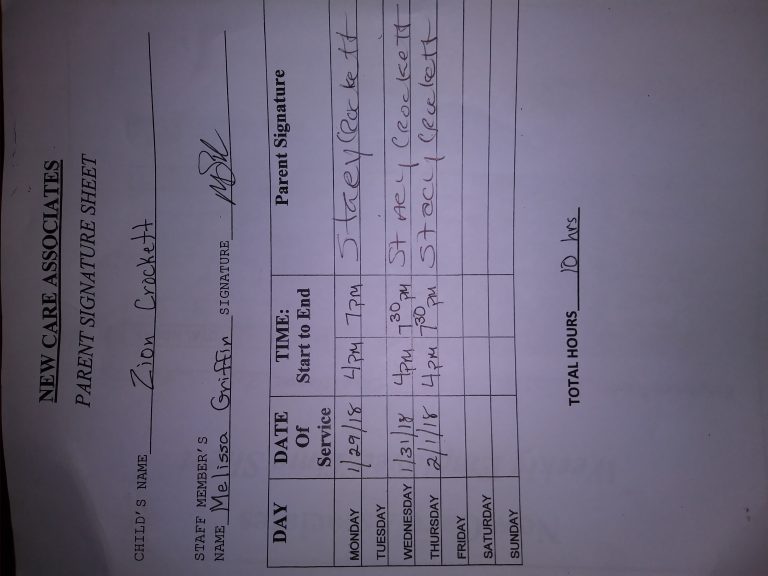 NEW CARE ASSOCIATES
PARENT SIGNATURE SHEET
CHILD'S NAME Zion Crockett
STAFF MEMBER'S
NAME Melissa Griffin SIGNATURE
DAY DATE Of Service TIME: Start to End Parent Signature
MONDAY 1/29/18 4PM 7PM Stacy Crockett
TUESDAY
WEDNESDAY 1/31/18 4PM 730 PM Stacy Crockett
THURSDAY 2/1/18 4PM 730 PM Stacy Crockett
FRIDAY
SATURDAY
SUNDAY
TOTAL HOURS 10 hrs